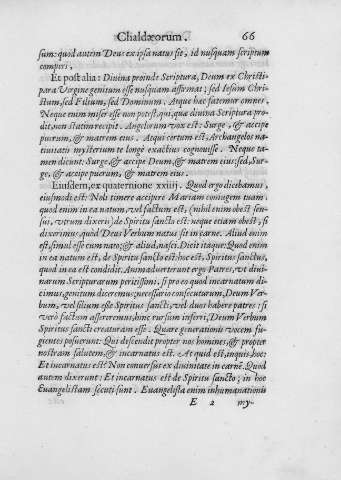 Chaldæorum. 66
sum: quod autem Deus ex ipsa natus sit, id nusquam scriptum
comperi.
Et post alia: Divina proinde Scriptura, Deum ex Christi-
para Virgine genitum esse nusquam affirmat; sed Iesum Chri-
stum, sed Filium, sed Dominum. Atque hæc fatemur omnes,
Neque enim miser esse non potest, qui, quæ divina Scriptura pro-
dit, non statim recipit. Angelorum vox est: Surge, & accipe
puerum, & matrem eius. Atqui certum est, Archangelos na-
tivitatis mysterium te longè exactius cognovisse. Neque ta-
men dicunt: Surge, & accipe Deum, & matrem eius; sed, Sur-
ge, & accipe puerum, & matrem eius.
Eiusdem, ex quaternione xxiiij. Quod ergo dicebamus,
eiusmodi est: Noli timere accipere Mariam coniugem tuam:
quod enim in ea natum, vel factum est, (nihil enim obest sen-
sui, verùm dixeris) de Spiritu sancto est: neque etiam obest, si
dixerimus, quòd Deus Verbum natus sit in carne. Aliud enim
est, simul esse cum nato; & aliud, nasci. Dicit itaque: Quod enim
in ea natum est, de Spiritu sancto est: hoc est, Spiritus sanctus,
quod in ea est condidit. Animadverterunt ergo Patres, vt divi-
narum Scripturarum peritissimi, si pro eo quod incarnatum di-
cimus, genitum diceremus; necessariò consecuturum, Deum Ver-
bum, vel filium esse Spiritus sancti, vel duos habere patres: si
verò factum assereremus, hinc rursum inferri, Deum Verbum
Spiritus sancti creaturam esse. Quare generationis vocem fu-
gientes posuerunt: Qui descendit propter nos homines, & propter
nostram salutem, & incarnatus est. At quid est, inquis, hoc:
Et incarnatus est? Non conversus ex divinitate in carnē. Quod
autem dixerunt: Et incarnatus est de Spiritu sancto; in hoc
Euangelistam secuti sunt. Euangelista enim inhumanationis
E 2 my-